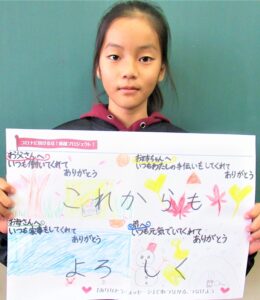 コロナに負けるな！感謝プロジェクト！
お父さんへ
いつも働いてくれて
ありがとう
お姉ちゃんへ
いつもわたしの手伝いをしてくれて
ありがとう
これからも
お母さんへ
いつも家事をしてくれて
ありがとう
いつも元気でいてくれて
ありがとう
よろしく